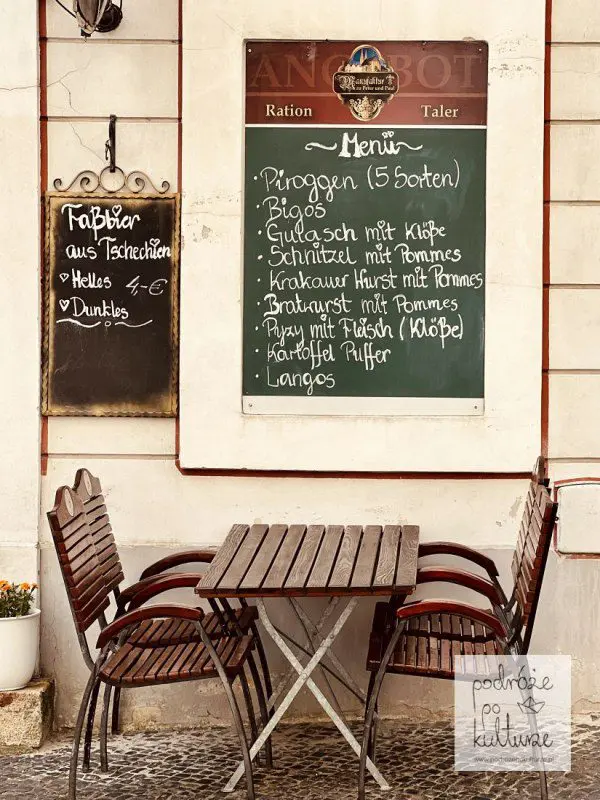 ANGEBOT
Manufaktur
zu Peter und Paul
Ration Taler
Menü
• Piroggen (5 Sorten)
• Bigos
• Gulasch mit Klöße
• Schnitzel mit Pommes
• Krakauer Wurst mit Pommes
• Bratwurst mit Pommes
• Pyzy mit Fleisch (Klöße)
• Kartoffel Puffer
• Langos
Faßbier
aus Tschechien
♡ Helles 4,-€
♡ Dunkles
podróże
po
kulturze
www.podrozepokulturze.pl